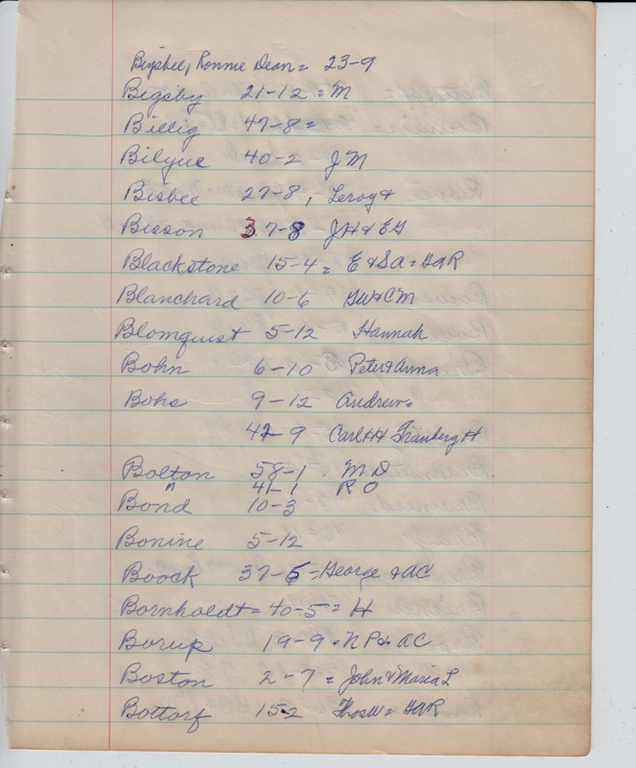 Bigsbee, Ronnie Dean = 23-9
Bigsby 21-12 = M
Billig 47-8 =
Bilyue 40-2 JM
Bisbee 27-8, Leroy &
Bisson 37-8 - JH & EG
Blackstone 15-4 = E & SA = GAR
Blanchard 10-6 GW & CM
Blomquist 5-12 Hannah
Bohn 6-10 Peter & Anna
Bohs 9-12 Andrew =
42-9 Carl H & H
Bolton 58-1 - MD
" 41-1 RO
Bond 10-3
Bonine 5-12
Boock 37-5 - George & AC
Bornholdt = 40-5 = H
Borup 19-9 = NP & AC
Boston 2-7 = John & Maria L
Bottorf 15-2 Thos W = GAR